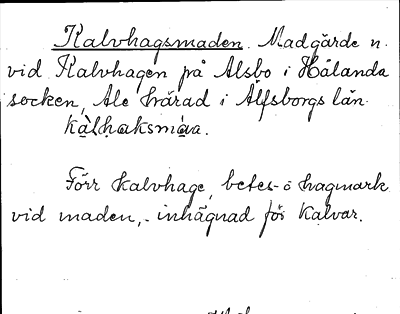 Kalvhagsmaden. Madgärde n.
vid Kalvhagen på Alsbo i Hålanda
socken, Ale härad i Älfsborgs län.
kàlhaksmáa.
Förr kalvhage, betes- o hagmark
vid maden, - inhägnad för kalvar.